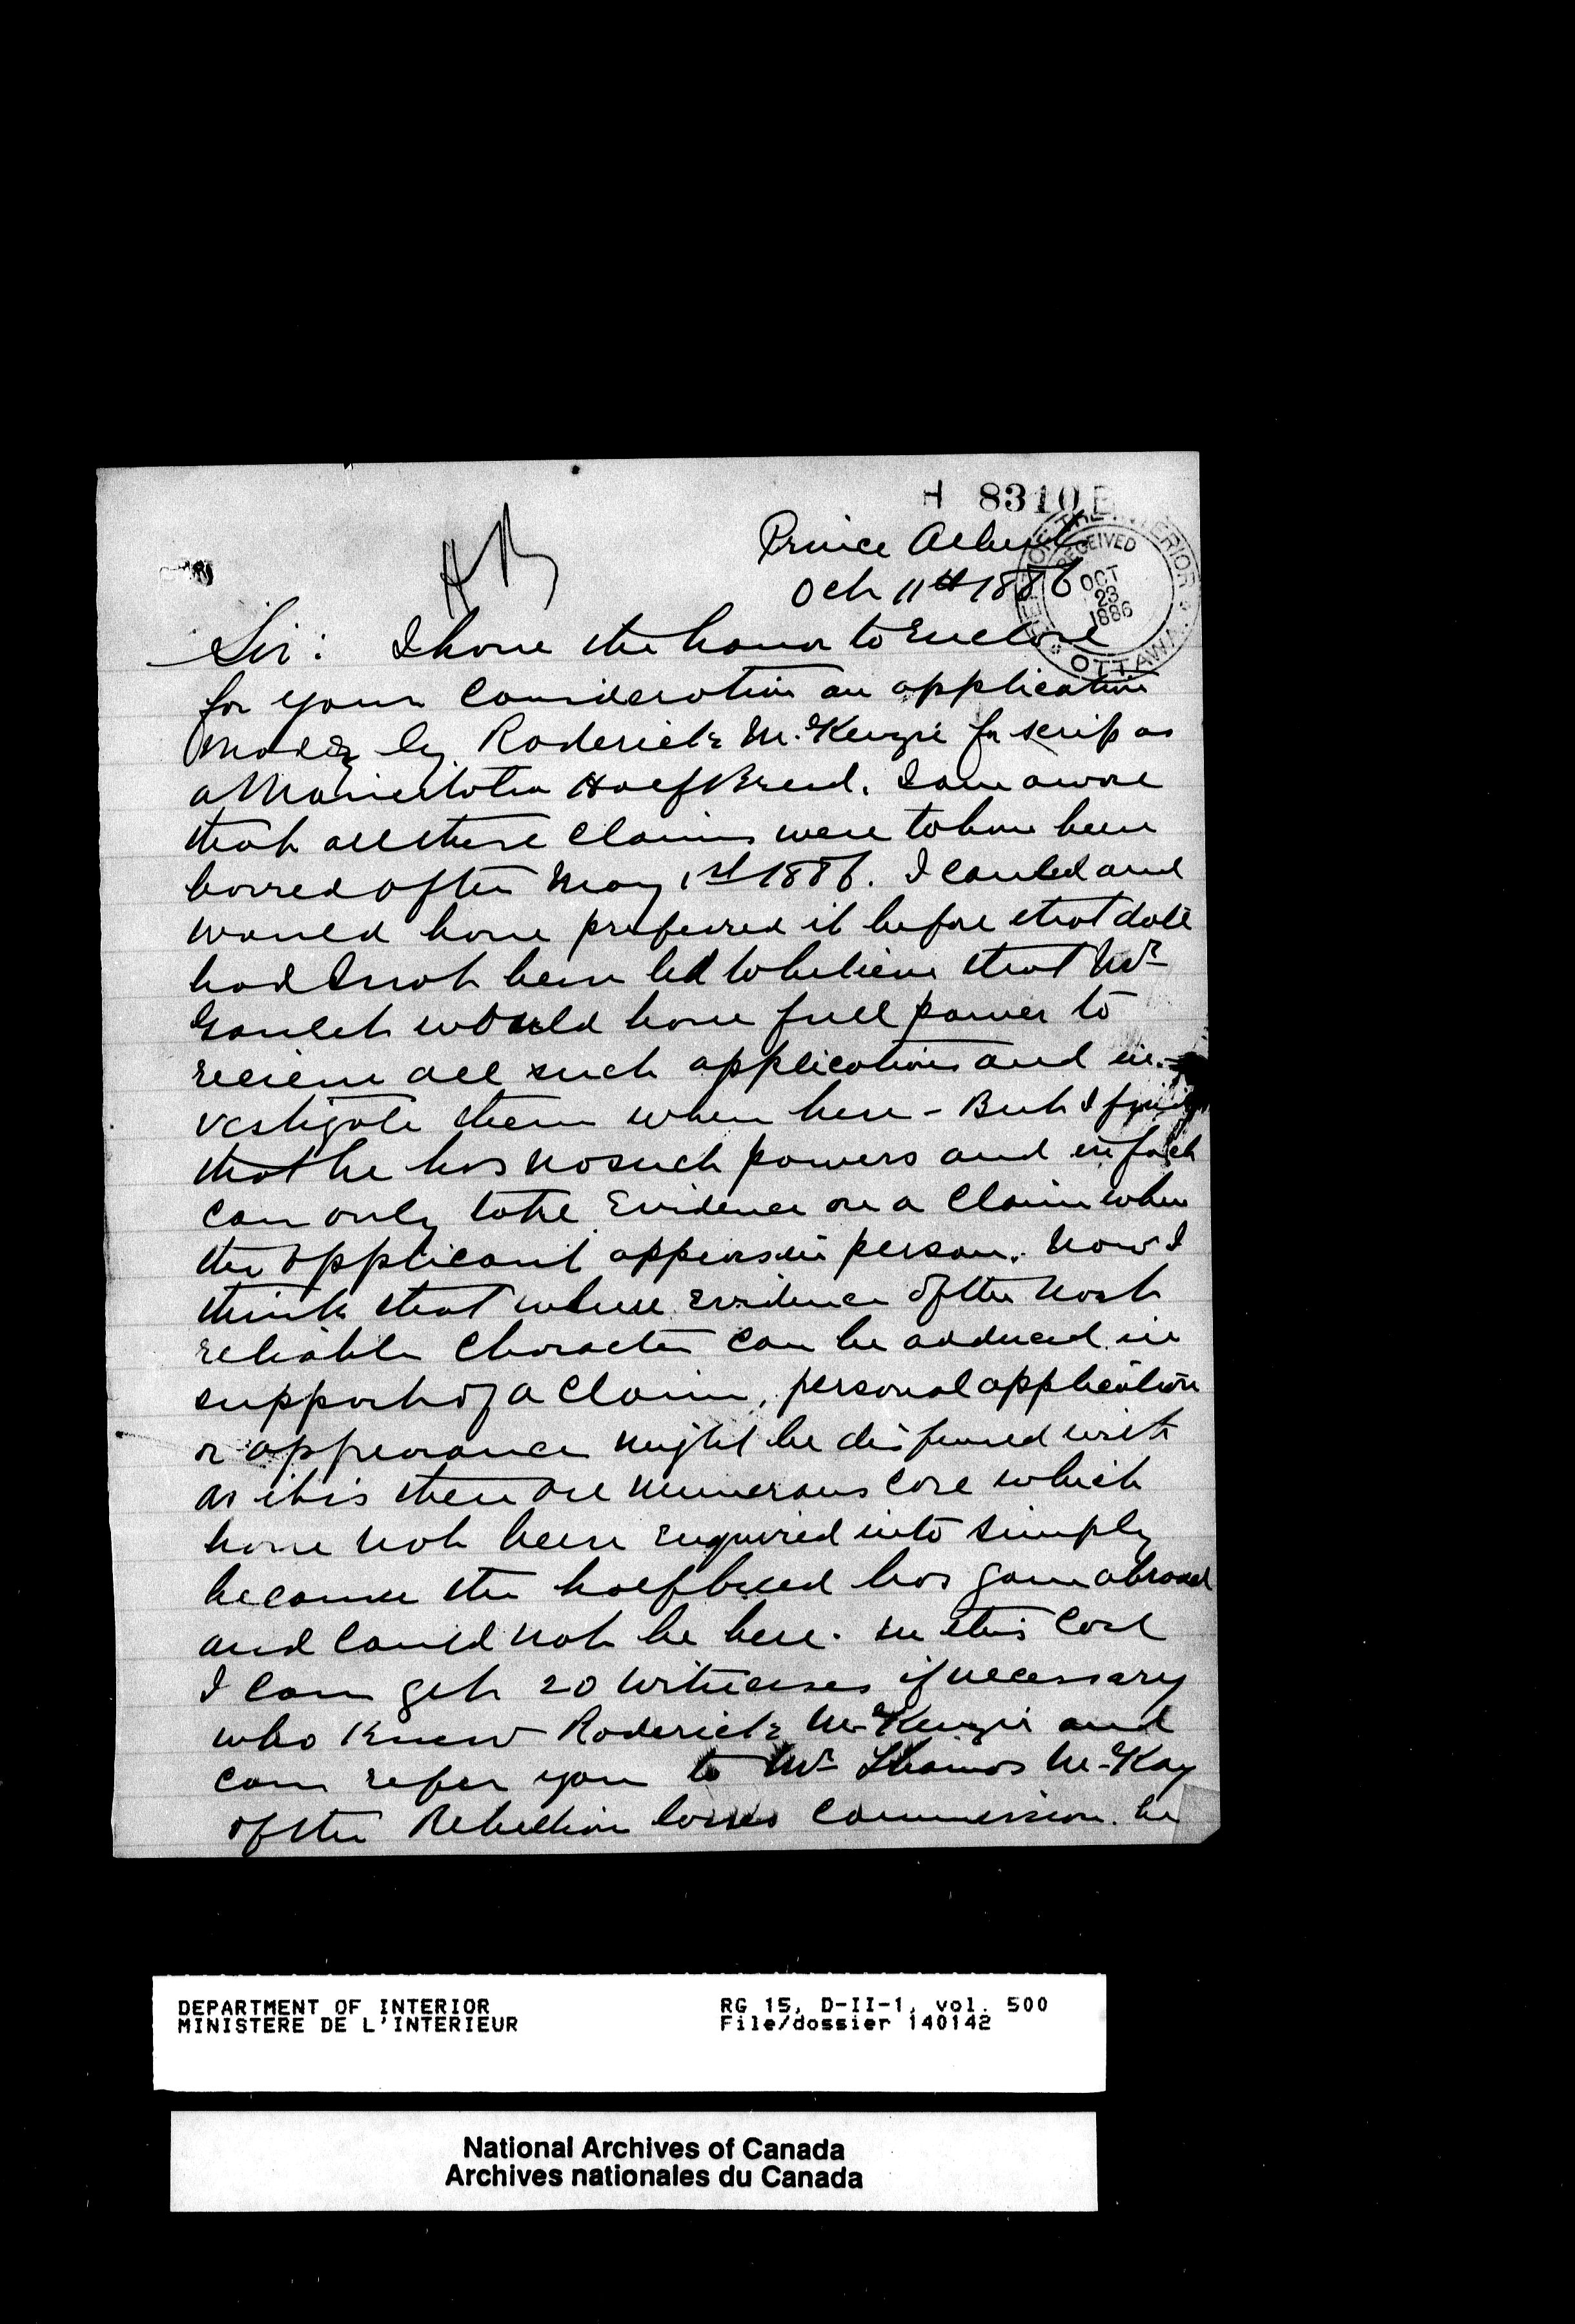 H 8310
HB
Prince Albert
Oct 11th 1886
DEPT. OF THE INTERIOR
RECEIVED
OCT
23
1886
OTTAWA
Sir: I have the honor to Enclose
for your Consideration an application
made by Roderick McKenzie for scrip as
a Manitoba Half Breed. I am aware
that all these claims were to have been
barred after May 1st 1886. I could and
would have preferred it before that date
had I not been led to believe that Mr
Goulet would have full power to
recieve all such applications and in-
vestigate them when here - But I find
that he has no such powers and in fact
can only take Evidence on a Claim when
the applicant appears in person. Now I
think that where Evidence of the most
reliable Character can be adduced in
support of a Claim, personal application
or appearance might be dispensed with
as it is there are numerous case which
have not been Enquired into simply
because the halfbreed has gone abroad
and could not be here. In this Case
I can get 20 witnesses if necessary
who Knew Roderick McKenzie and
can refer you to Mr Thomas McKay
of the Rebellion losses Commission. he
DEPARTMENT OF INTERIOR
MINISTERE DE L'INTERIEUR
RG 15, D-II-1, vol. 500
File/dossier 140142
National Archives of Canada
Archives nationales du Canada